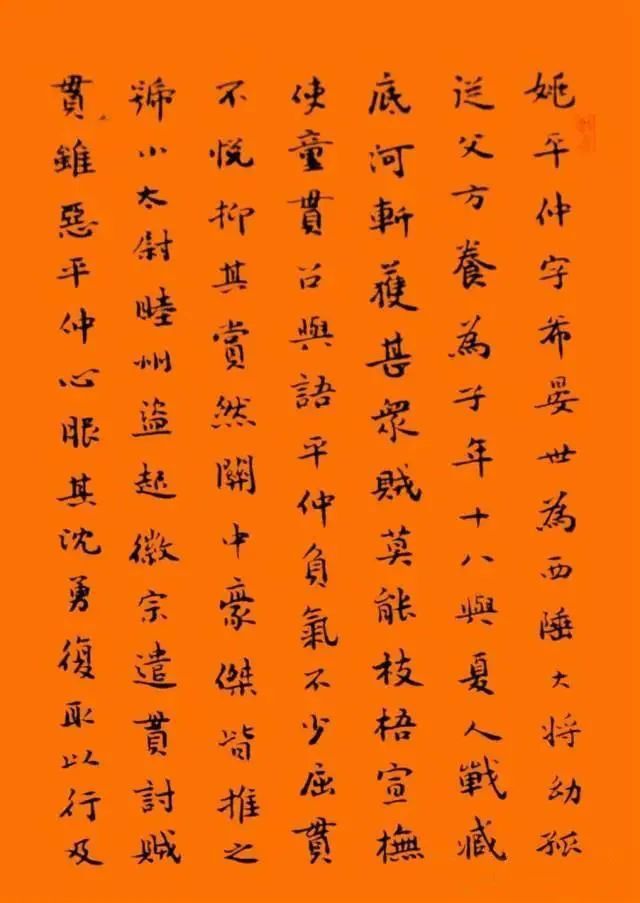 姚平仲字希晏世為西陲大將幼孤
從父方養為子年十八與夏人戰臧
底河斬獲甚衆賊莫能枝梧宣撫
使童貫召與語平仲負氣不少屈貫
不悅抑其賞然關中豪傑皆推之
號小太尉睦州盜起徽宗遣貫討賊
貫雖惡平仲心服其沈勇復取以行及